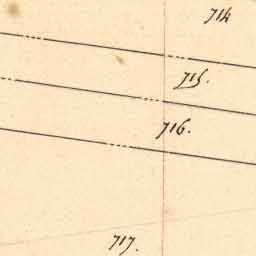 714
715.
716.
717.